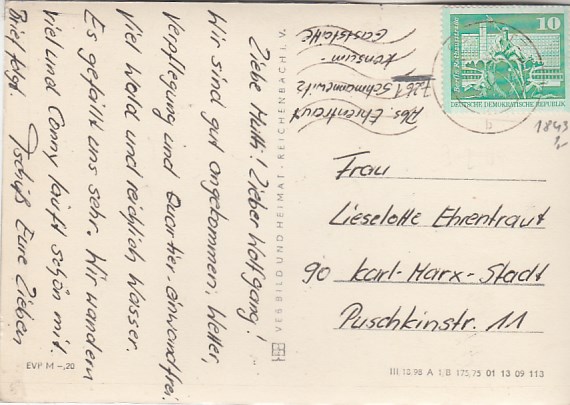 Liebe Mutti! Lieber Wolfgang!
Wir sind gut angekommen, Wetter,
Verpflegung und Quartier einwandfrei.
Viel Wald und reichlich Wasser.
Es gefällt uns sehr. Wir wandern
viel und Conny läuft schön mit.
Tschüß Eure Lieben
Brief folgt
Abs. Ehrentraut
7261 Schmannewitz
Konsum-
Gaststätte
VEB BILD UND HEIMAT · REICHENBACH I. V.
10
Berlin, Rathausstraße
DEUTSCHE DEMOKRATISCHE REPUBLIK
b
1843
Frau
Lieselotte Ehrentraut
90 Karl-Marx-Stadt
Puschkinstr. 11
EVP M -,20
III 18 98 A 1/B 175/75 01 13 09 113